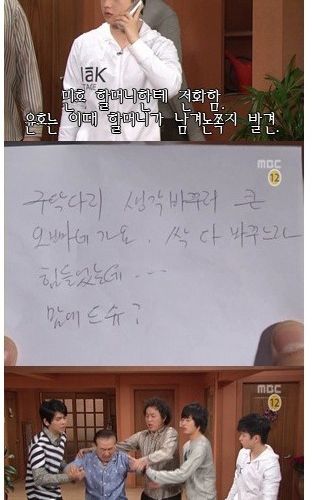 lák
TIME
민호 할머니한테 전화함.
운호는 이때 할머니가 남겨논쪽지 발견.
MBC
12
구닥다리 생각바꾸러 큰
오빠네 가요. 싹 다 바꾸느라
힘들었는데...
맘에 드슈?
MBC
12